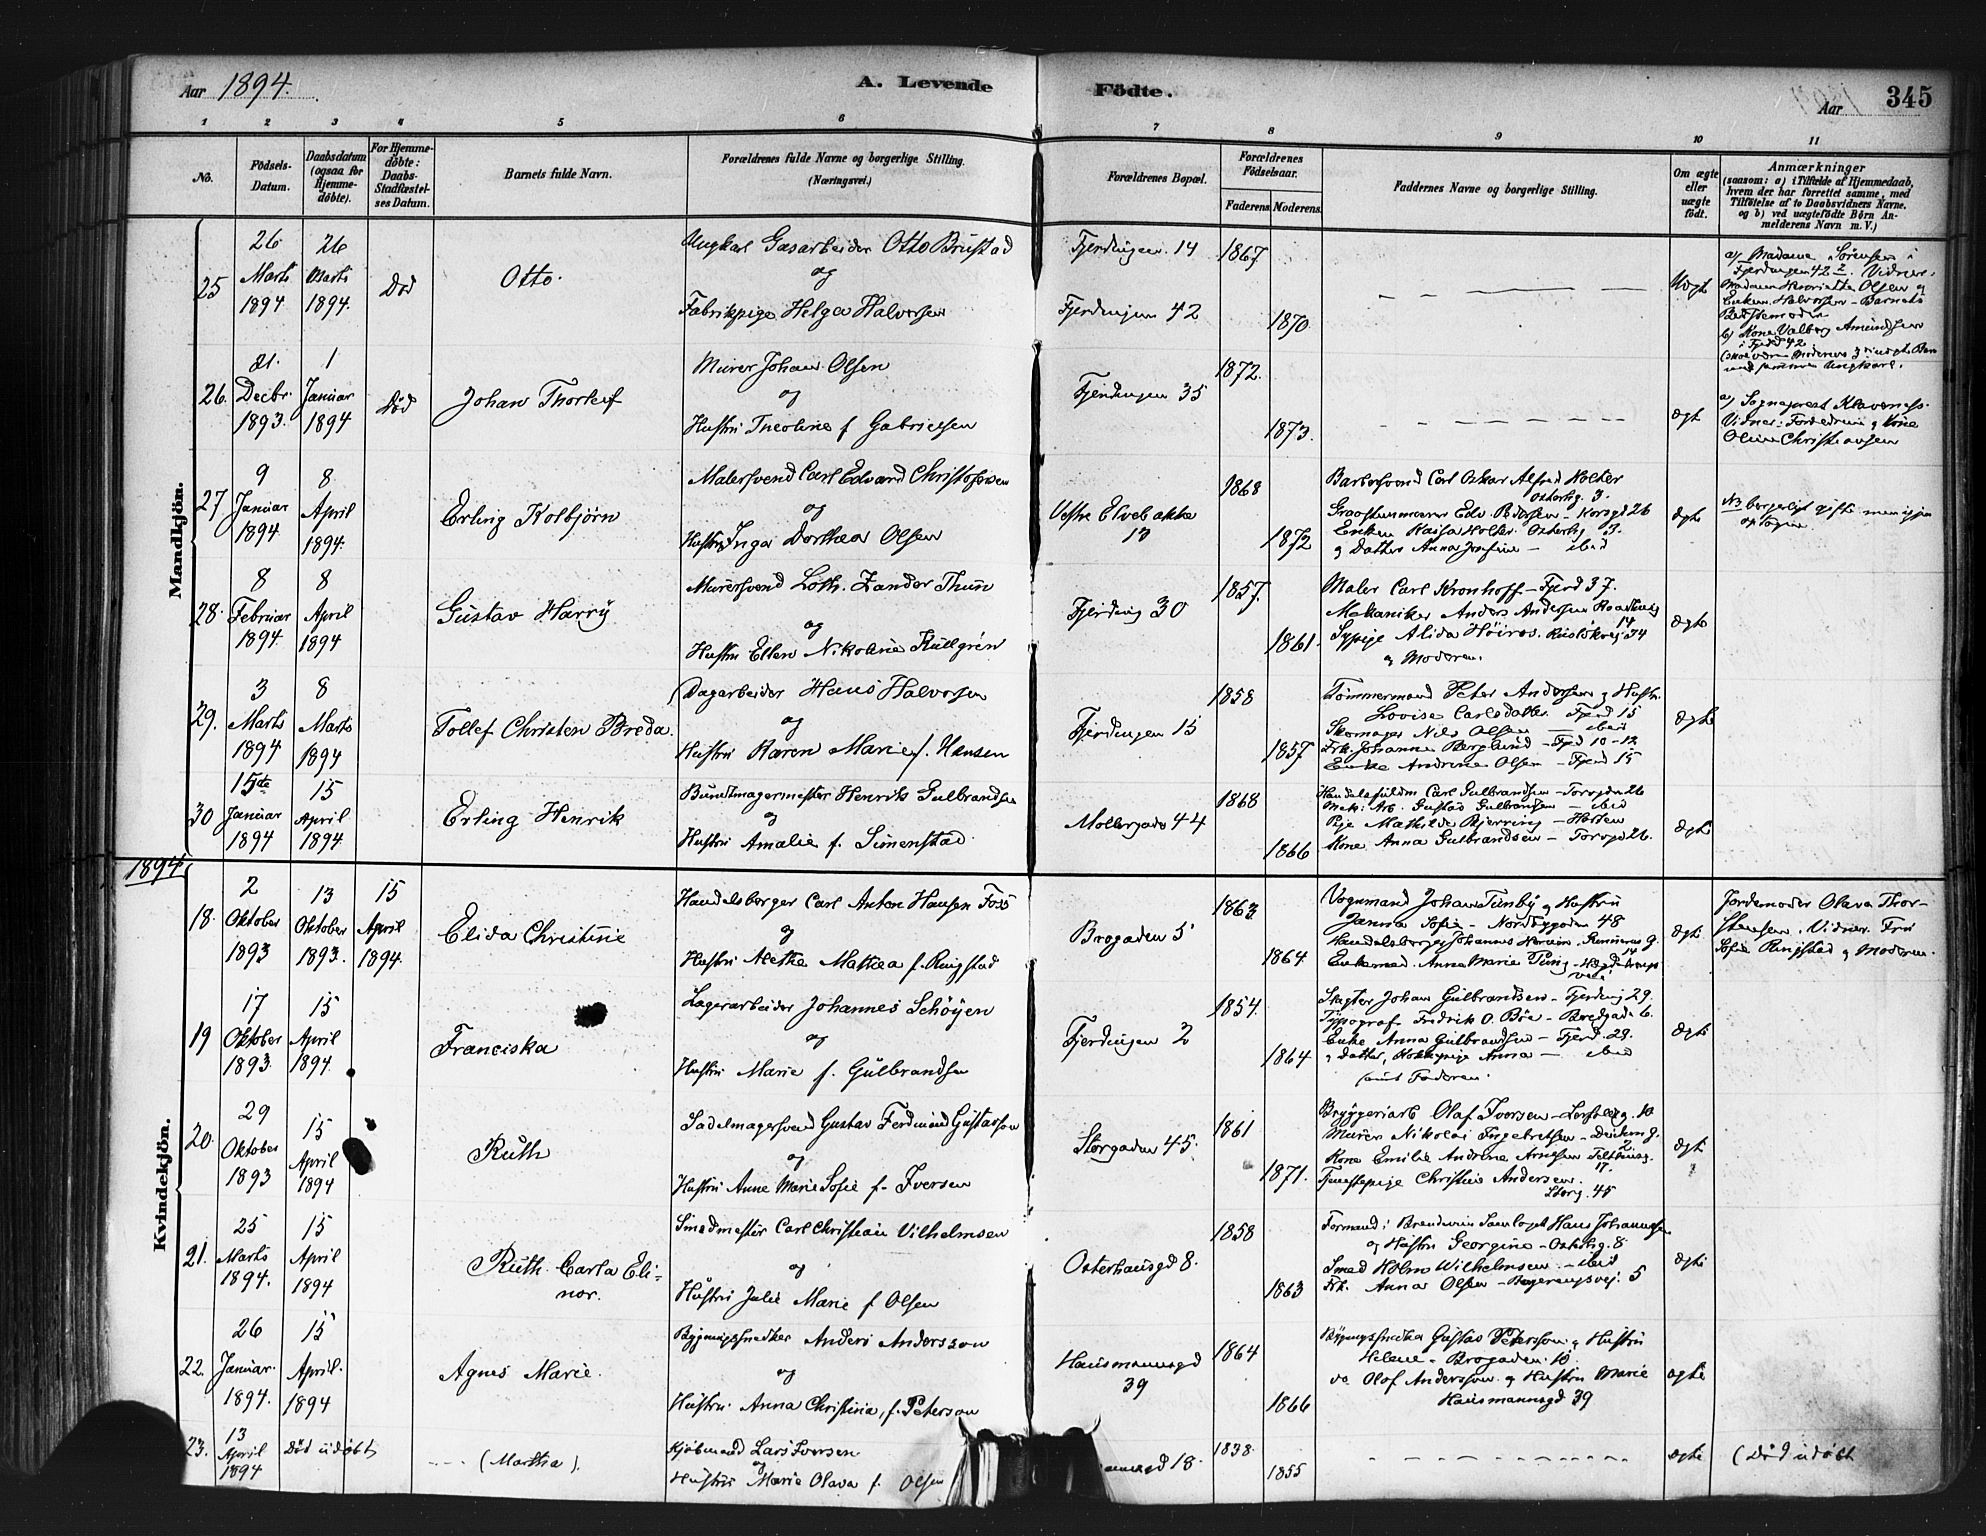 Aar 1894.
A. Levende Födte.
Aar
345
1 2 3 4 5 6 7 8 9 10 11
No.
Födsels-Datum.
Daabsdatum (ogsaa for Hjemmedöbte).
For Hjemmedöbte: Daabs-Stadfæstelses Datum.
Barnets fulde Navn.
Forældrenes fulde Navne og borgerlige Stilling. (Næringsvei.)
Forældrenes Bopæl.
Forældrenes Födselsaar.
Faderens. Moderens.
Faddernes Navne og borgerlige Stilling.
Om ægte eller uægte födt.
Anmærkninger
(saasom: a) i Tilfælde af Hjemmedaab,
hvem der har forrettet samme, med
Tilföielse af to Daabsvidners Navne,
og b) ved uægtefödte Börn Anmelderens Navn m. V.)
Mandkjön.
25
26 Marts 1894
26 Marts 1894.
Död
Otto.
Ungkarl Gasarbeider Otto Brustad
og
Fabrikpige Helga Halvorsen
Fjerdingen 14
Fjerdingen 42
1867
1870
Uægte
a) Madame Sörensen i
Fjerdingen 42. Vidner:
Madam Henriette Olsen og
Enken Halvorsen - Barnets
Bedstemoder
b) Kone Valborg Amundsen
i Fjerd 42
26.
21. Decbr. 1893.
1 Januar 1894
Död
Johan Thorleif
Murer Johan Olsen
og
Hustru Theoline f Gabrielsen
Fjerdingen 35
1872.
1873.
ægte
a) Sogneprest Klaveness.
Vidner: Forældrene og Kone
Oline Christiansen
27
9 Januar 1894
8 April 1894.
Erling Kolbjörn
Malersvend Carl Edvard Christofersen
og
Hustru Inga Dorthea Olsen
Vestre Elvebakke
13
1868
1872
Barbersvend Carl Oskar Alfred Holter
Osterhg. 3.
Graastensmurer Edv. Pedersen - Korsgd 26
Enken Kaisa Holter Osterhg 3.
og Datter Anna Josefine - ibid
ægte
NB borgerligt gifte
28.
8 Februar 1894.
8 April 1894
Gustav Harry
Murersvend Loth. Zander Thun
og
Hustru Ellen Nikoline Kullgrén
Fjerding 30
1857.
1861.
Maler Carl Kronhoff - Fjerd 37.
Mekaniker Anders Andersen
14
Sypige Alida Höiros. Ruslökvej 34
og Moderen.
ægte
29.
3 Marts 1894
8 Marts 1894
Tollef Christen Breda.
Dagarbeider Hans Halvorsen
og
Hustru Karen Marie f. Hansen
Fjerdingen 15
1858
1857
Tömmermand Peter Andersen og Hustru
Lovise Carlsdatter Fjerd 15
Skomager Nils Olsen - ibid
Frk. Johanne Berglund - Fjd 10-12
Enke Andrine Olsen - Fjerd 15
ægte
30
15de Januar 1894
15 April 1894.
Erling Henrik
Buntmagermester Henrik Gulbrandsen
og
Hustru Amalie f. Simenstad
Möllergade 44
1868
1866
Handelsfuldm Carl Gulbrandsen - Torvgd 26
Mek: Arb. Gustav Gulbransen - ibid
Pige Mathilde Bjerring - Horten
Kone Anna Gulbrandsen - Torvgd 26.
ægte
1894
Kvindekjön.
18.
2 Oktober 1893
13 Oktober 1893.
15 April 1894.
Elida Christine
Handelsborger Carl Anton Hansen Foss
og
Hustru Alethe Mathea f. Ringstad
Brogaden 5
1863
1864
Vognmand Johan Tunby og Hustru
Janna Sofie - Nordbygaden 48
Handelsborger Johannes
Enkemad. Anna Marie Tung
ægte
Jordemoder Olava Thorstensen. Vidner Fru
Sofie Ringstad og Moderen.
19
17 Oktober 1893.
15 April 1894.
Franciska
Lagerarbeider Johannes Schöyen
og
Hustru Marie f. Gulbrandsen
Fjerdingen 2
1854.
1864
Slagter Johan Gulbrandsen - Fjerding 29.
Typograf Fredrik O. Böe - Bredgade 6.
Enke Anna Gulbrandsen - Fjerd. 29.
og datter, Anna - ibid
samt Faderen.
ægte
20.
29 Oktober 1893
15 April 1894
Ruth
Sadelmagersvend Gustav Ferdinand Gustavson
og
Hustru Anne Marie Sofie f. Iversen
Storgaden 45.
1861
1871.
Bryggeriarb Olaf Iversen
Murer Nikolai Ingebretsen
Kone Emilie Andrine Arnesen
17.
Tjenestepige Christine Andersen.
Storg. 45
ægte
21.
25 Marts 1894.
15 April 1894
Ruth Carla Elinor.
Smedmester Carl Christian Vilhelmsen
og
Hustru Julie Marie f Olsen
Osterhausgd 8.
1858
1863
Formand i Brændevins Samlaget Hans Johannesen
og Hustru Georgine - Osterhg. 8
Smed Holm Wilhelmsen - ibid
Frk. Anna Olsen - 5
ægte
22.
26 Januar. 1894.
15 April. 1894
Agnes Marie.
Bygningssnedker Anders Andersson
og
Hustru Anna Christina, f. Peterson
Hausmannsgd
39
1864
1866
Bygningssnedker Gustav Petersson og Hustru
Helene - Brogaden 10
do Olof Andersson og Hustru Marie
Hausmannsgd 39
ægte
23.
13 April 1894
Död udöbt
(Martha).
Kjöbmand Lars Iversen
og
Hustru Marie Olava f. Olsen
18.
1838.
1855
ægte
(Död udöbt